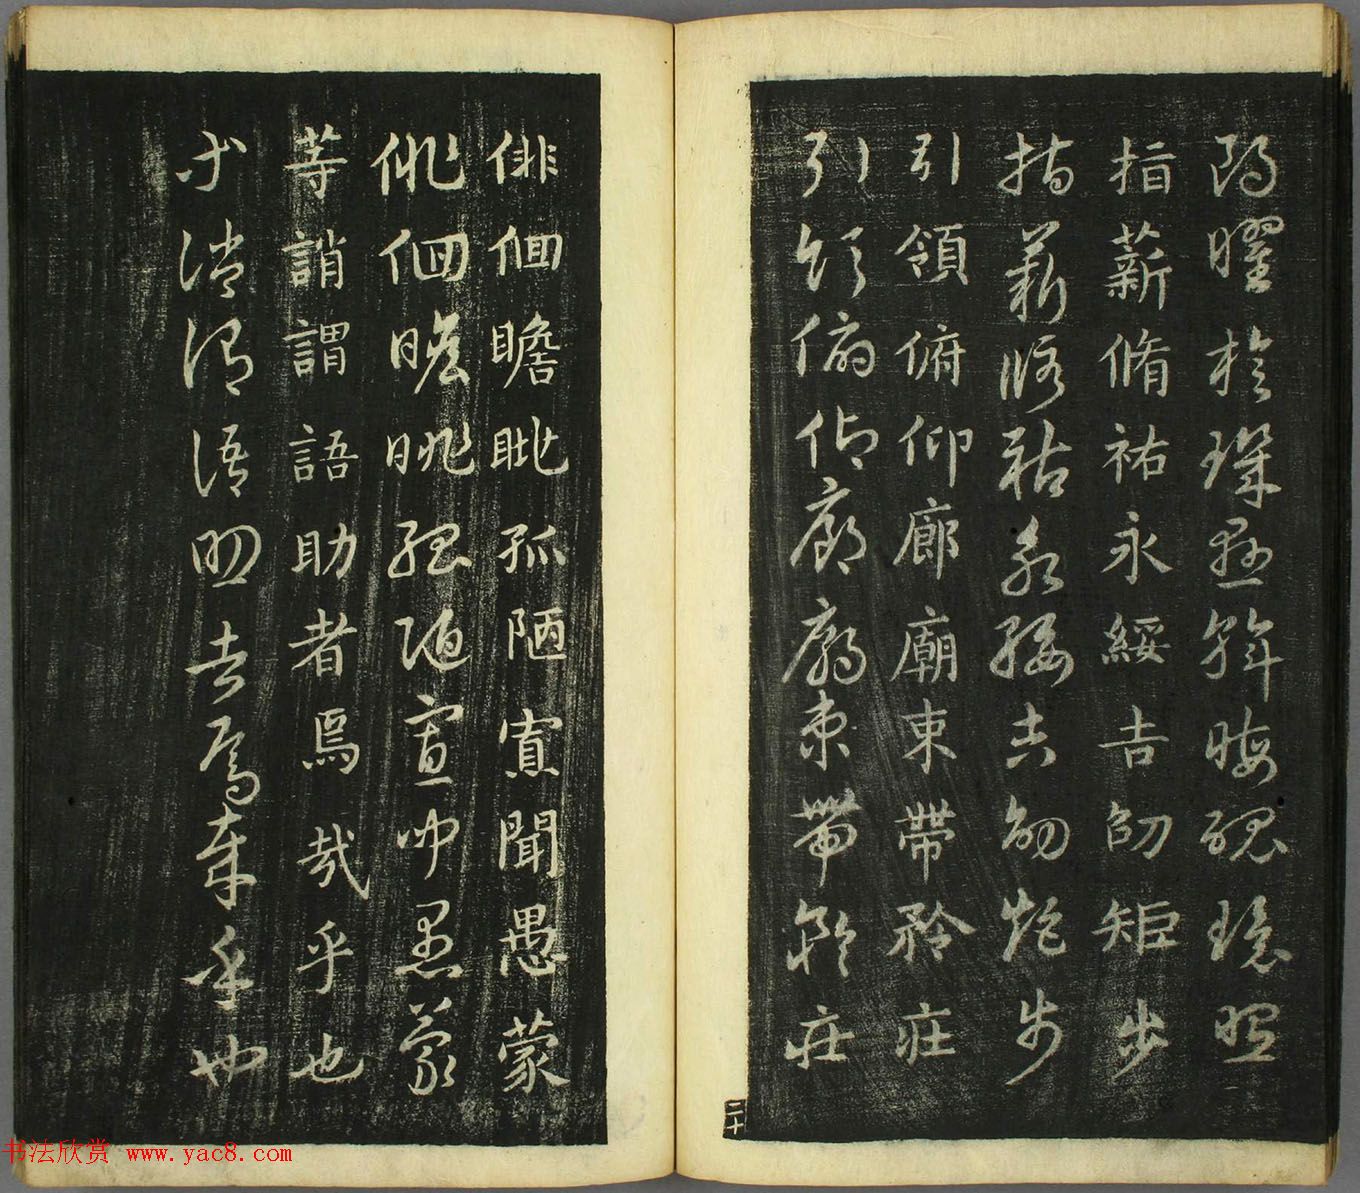 朗曜旋璣懸斡晦魄環照
指薪脩祐永綏吉劭矩步
指薪脩祐永綏吉劭矩步
引領俯仰廊廟束帶矜莊
引領俯仰廊廟束帶矜莊
二十
俳佪瞻眺孤陋寡聞愚蒙
俳佪瞻眺孤陋寡聞愚蒙
等誚謂語助者焉哉乎也
等誚謂語助者焉哉乎也
书法欣赏 www.yac8.com